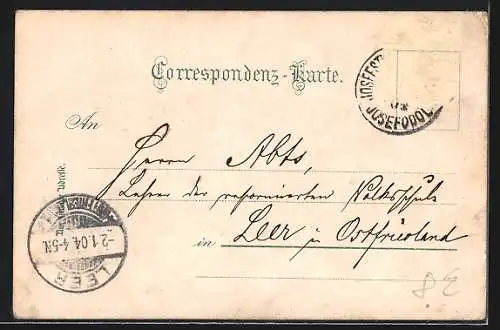 Correspondenz-Karte.
JOSEFSTHAL
JOSEFODOL
An
Herrn Abts,
Lehrer der reformierten Volksschule
in Leer in Ostfriesland
-2.1.04.4-5N.
LEER